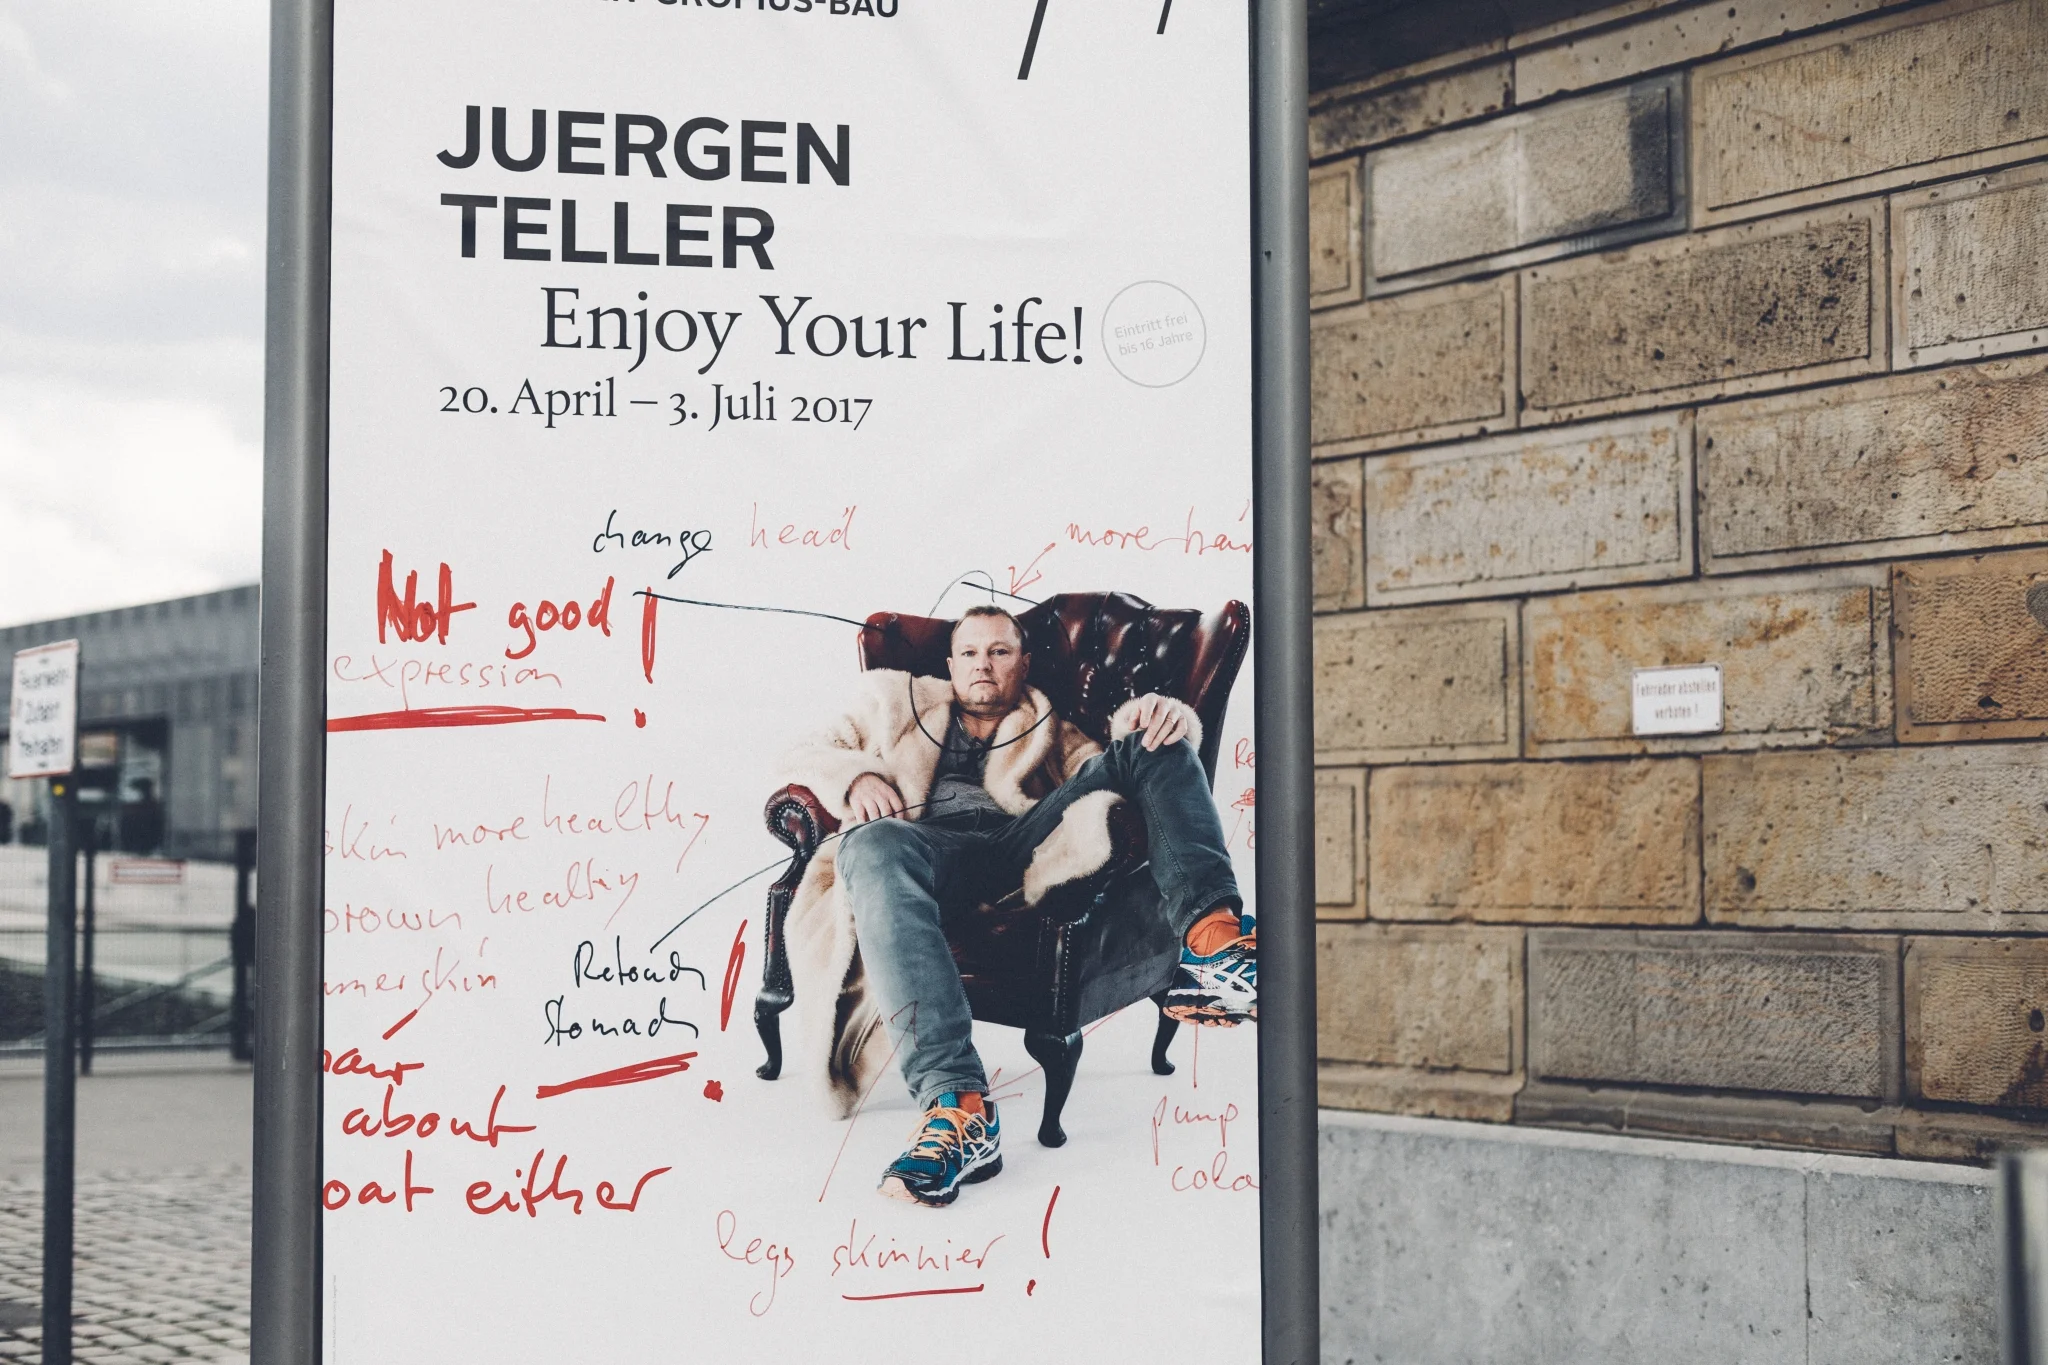 GROPIUS-BAU
JUERGEN
TELLER
Enjoy Your Life!
Eintritt frei
bis 16 Jahre
20. April – 3. Juli 2017
change head
more hair
Not good !
expression
skin more healthy
brown healthy
skin
Retouch
Stomach !
about
either
pump
legs skinnier !
Fahrräder abstellen
verboten !